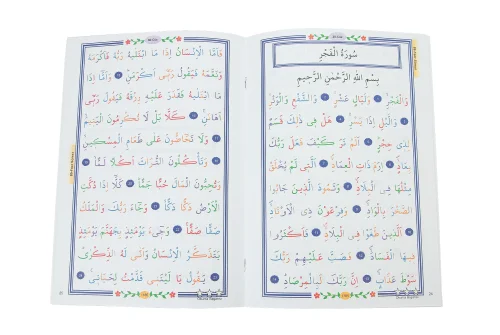 سُورَةُ الْفَجْرِ
بِسْمِ اللّٰهِ الرَّحْمٰنِ الرَّحِيمِ
وَالْفَجْرِ وَلَيَالٍ عَشْرٍ وَالشَّفْعِ وَالْوَتْرِ
وَالَّيْلِ اِذَا يَسْرِ هَلْ فِي ذٰلِكَ قَسَمٌ
لِذِي حِجْرٍ اَلَمْ تَرَ كَيْفَ فَعَلَ رَبُّكَ
بِعَادٍ اِرَمَ ذَاتِ الْعِمَادِ اَلَّتِي لَمْ يُخْلَقْ
مِثْلُهَا فِي الْبِلَادِ وَثَمُودَ الَّذِينَ جَابُوا
الصَّخْرَ بِالْوَادِ وَفِرْعَوْنَ ذِي الْاَوْتَادِ
اَلَّذِينَ طَغَوْا فِي الْبِلَادِ فَاَكْثَرُوا
فِيهَا الْفَسَادَ فَصَبَّ عَلَيْهِمْ رَبُّكَ
سَوْطَ عَذَابٍ اِنَّ رَبَّكَ لَبِالْمِرْصَادِ
فَاَمَّا الْاِنْسَانُ اِذَا مَا ابْتَلٰيهُ رَبُّهُ فَاَكْرَمَهُ
وَنَعَّمَهُ فَيَقُولُ رَبِّي اَكْرَمَنِ وَاَمَّا اِذَا
مَا ابْتَلٰيهُ فَقَدَرَ عَلَيْهِ رِزْقَهُ فَيَقُولُ رَبِّي
اَهَانَنِ كَلَّا بَلْ لَا تُكْرِمُونَ الْيَتِيمَ
وَلَا تَحَاضُّونَ عَلٰى طَعَامِ الْمِسْكِينِ
وَتَأْكُلُونَ التُّرَاثَ اَكْلًا لَمًّا
وَتُحِبُّونَ الْمَالَ حُبًّا جَمًّا كَلَّا اِذَا دُكَّتِ
الْاَرْضُ دَكًّا دَكًّا وَجَاءَ رَبُّكَ وَالْمَلَكُ
صَفًّا صَفًّا وَجِيءَ يَوْمَئِذٍ بِجَهَنَّمَ يَوْمَئِذٍ
يَتَذَكَّرُ الْاِنْسَانُ وَاَنّٰى لَهُ الذِّكْرٰى
يَقُولُ يَا لَيْتَنِي قَدَّمْتُ لِحَيَاتِي